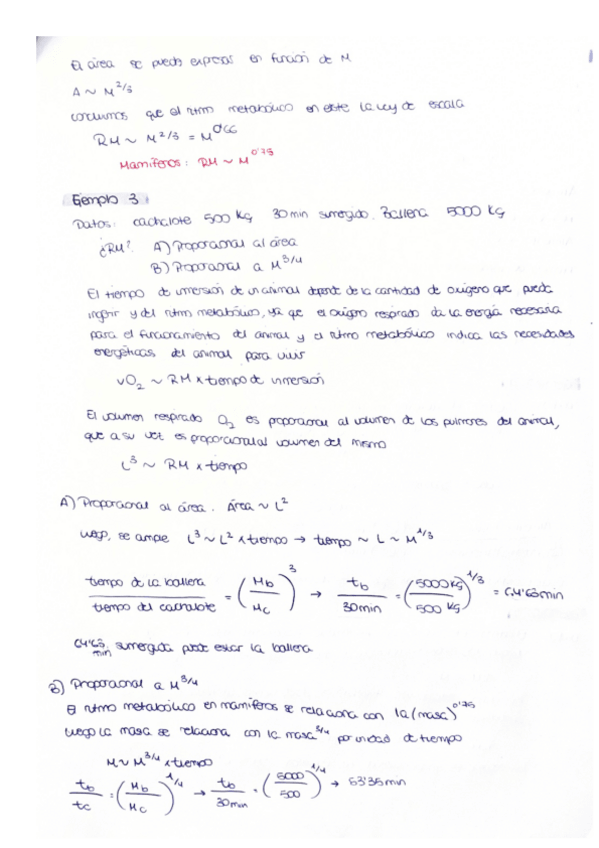 El área se puede expresar en función de M
A ~ M^2/3
concluimos que el ritmo metabólico en este la ley de escala
RM ~ M^2/3 = M^0'66
Mamíferos: RM ~ M^0'75
Ejemplo 3:
Datos: cachalote 500 Kg 30 min sumergido. Ballena 5000 Kg
¿RM? A) Proporcional al área
B) Proporcional a M^3/4
El tiempo de inmersión de un animal depende de la cantidad de oxígeno que pueda
ingerir y del ritmo metabólico, ya que el oxígeno respirado da la energía necesaria
para el funcionamiento del animal y el ritmo metabólico indica las necesidades
energéticas del animal para vivir
vO₂ ~ RM x tiempo de inmersión
El volumen respirado O₂ es proporcional al volumen de los pulmones del animal,
que a su vez es proporcional al volumen del mismo
L^3 ~ RM x tiempo
A) Proporcional al área. Área ~ L^2
luego, se cumple L^3 ~ L^2 x tiempo → tiempo ~ L ~ M^1/3
tiempo de la ballena / tiempo del cachalote = (Mb / Mc)^3 → tb / 30min = (5000Kg / 500 Kg)^1/3 = 64'63min
64'63 min sumergida puede estar la ballena
B) Proporcional a M^3/4
El ritmo metabólico en mamíferos se relaciona con la (masa)^0'75
luego la masa se relaciona con la masa^3/4 por unidad de tiempo
M ~ M^3/4 x tiempo
tb / tc = (Mb / Mc)^1/4 → tb / 30min = (5000 / 500)^1/4 → 53'35 min